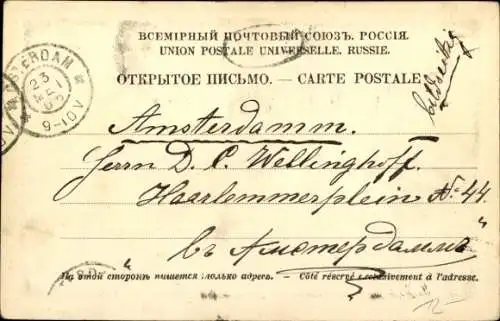 ВСЕМІРНЫЙ ПОЧТОВЫЙ СОЮЗЪ. РОССІЯ.
UNION POSTALE UNIVERSELLE. RUSSIE.
ОТКРЫТОЕ ПИСЬМО. — CARTE POSTALE
AMSTERDAM
23
9-10V
Amsterdamm.
Herrn D. C. Wellinghoff.
Haarlemmerplein № 44
въ Амстердаммъ
На этой сторонѣ пишется только адресъ. — Côté réservé exclusivement à l'adresse.